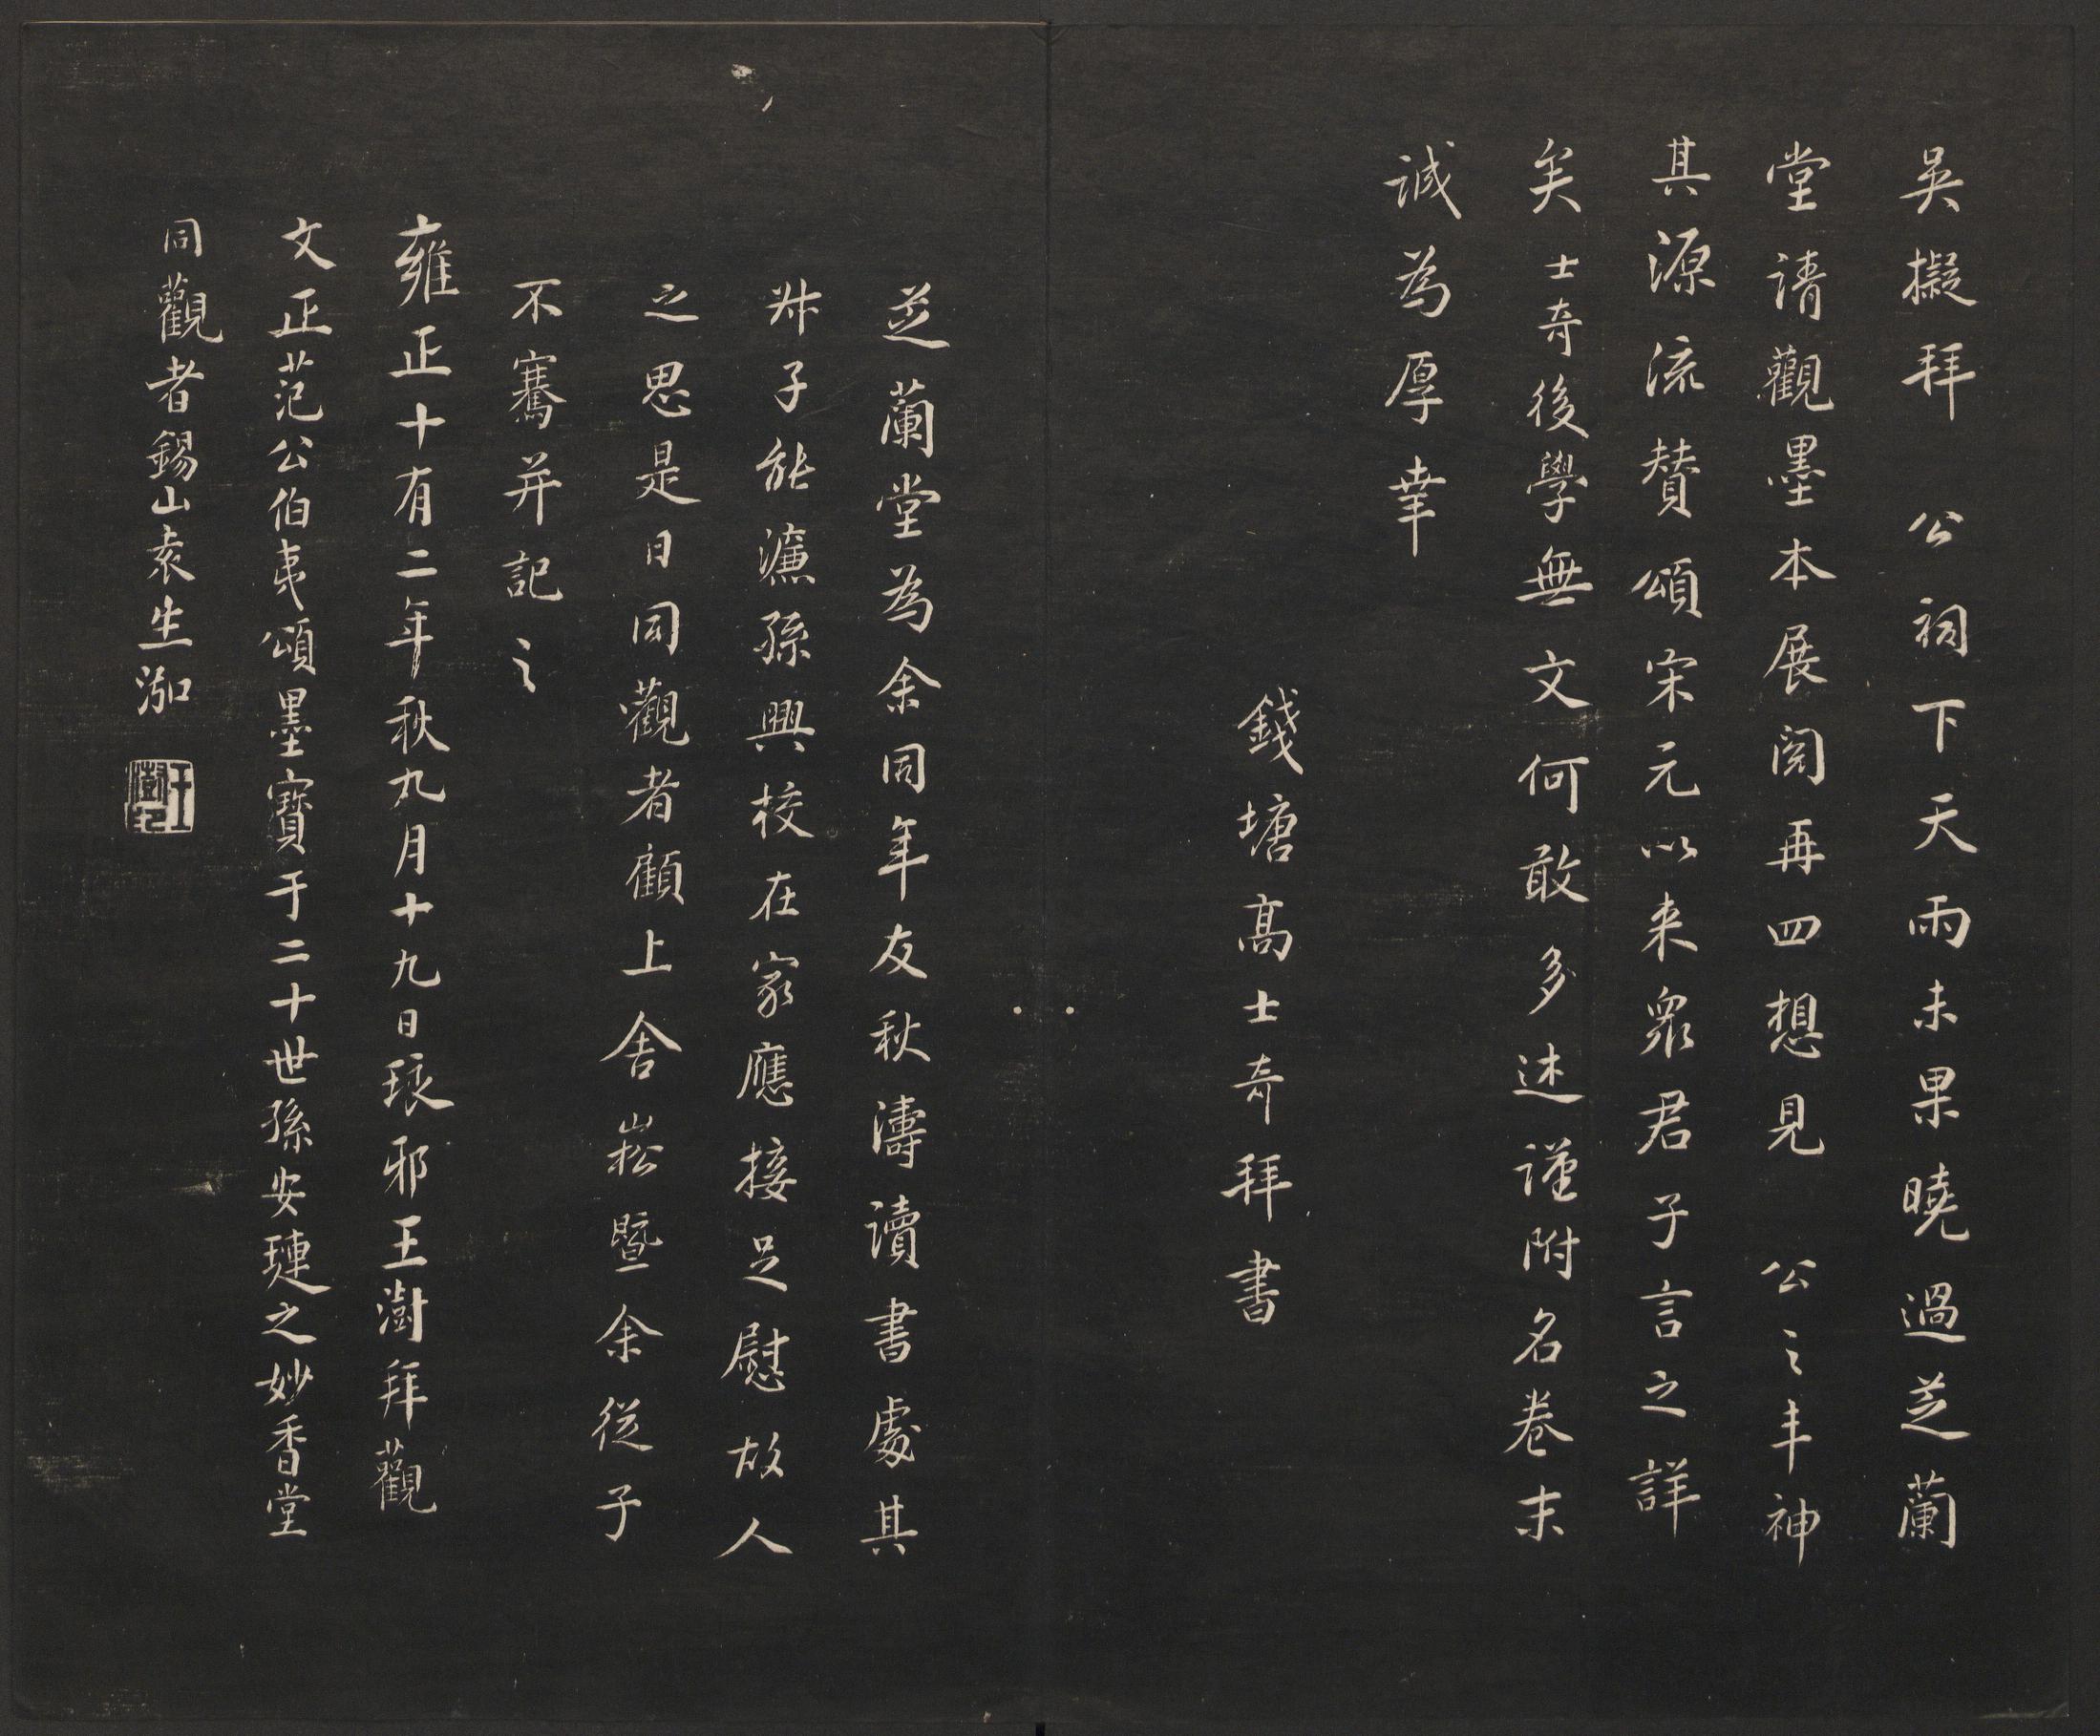 吳擬拜　公祠下天雨未果曉過芝蘭
堂請觀墨本展閱再四想見　公之丰神
其源流贊頌宋元以来衆君子言之詳
矣士奇後學無文何敢多述谨附名卷末
誠為厚幸
錢塘高士奇拜書
芝蘭堂為余同年友秋濤讀書處其
叔子能濂孫興校在家應接足慰故人
之思是日同觀者顧上舍崧暨余從子
不騫并記之
雍正十有二年秋九月十九日琅邪王澍拜觀
文正范公伯夷頌墨寶于二十世孫安璉之妙香堂
同觀者錫山袁生泓
王澍印